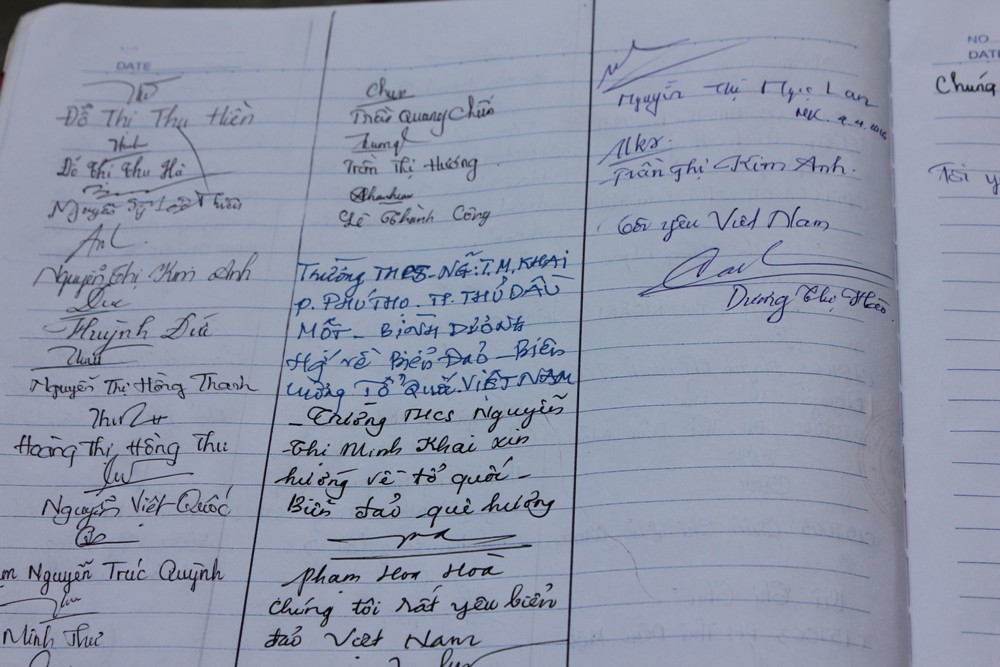 DATE
Đỗ Thị Thu Hiền
Đỗ Thị Thu Hà
Nguyễn
Nguyễn Thị Kim Anh
Huỳnh Đức
Nguyễn Thị Hồng Thanh
Hoàng Thị Hồng Thu
Nguyễn Viết Quốc
Nguyễn Trúc Quỳnh
Minh Thư
Trần Quang Chiến
Trần Thị Hương
Lê Thành Công
Trường THCS-NG:T.M.KHAI
P. PHÚ THỌ. TP. THỦ DẦU
MỘT - BÌNH DƯƠNG
về Biển Đảo - Biên
cương TỔ QUỐC VIỆT NAM
- Trường THCS Nguyễn
Thi Minh Khai xin
hướng về tổ quốc -
Biển đảo quê hương
Phạm Hoa Hoà
Chúng tôi rất yêu biển
đảo Việt Nam
Nguyễn Thị Ngọc Lan
Trần Thị Kim Anh.
Tôi yêu Việt Nam
Dương Thị
NO
DATE
Chúng
Tôi y